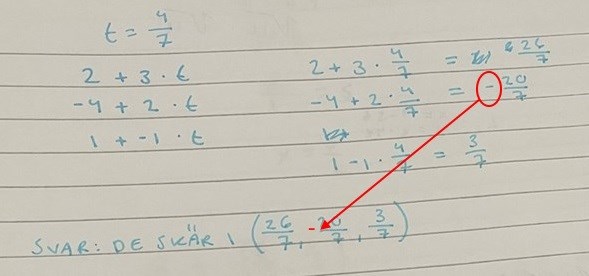 t = 4/7
2 + 3 · t    2 + 3 · 4/7 = 26/7
-4 + 2 · t    -4 + 2 · 4/7 = -20/7
1 + -1 · t    1 - 1 · 4/7 = 3/7
SVAR: DE SKÄR I (26/7, -20/7, 3/7)